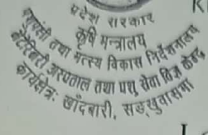 प्रदेश सरकार
कृषि मन्त्रालय
पशुपंछी तथा मत्स्य विकास निर्देशनालय
भेटेरिनरी अस्पताल तथा पशु सेवा विज्ञ केन्द्र
कार्यक्षेत्रः खाँदबारी, सङ्खुवासभा